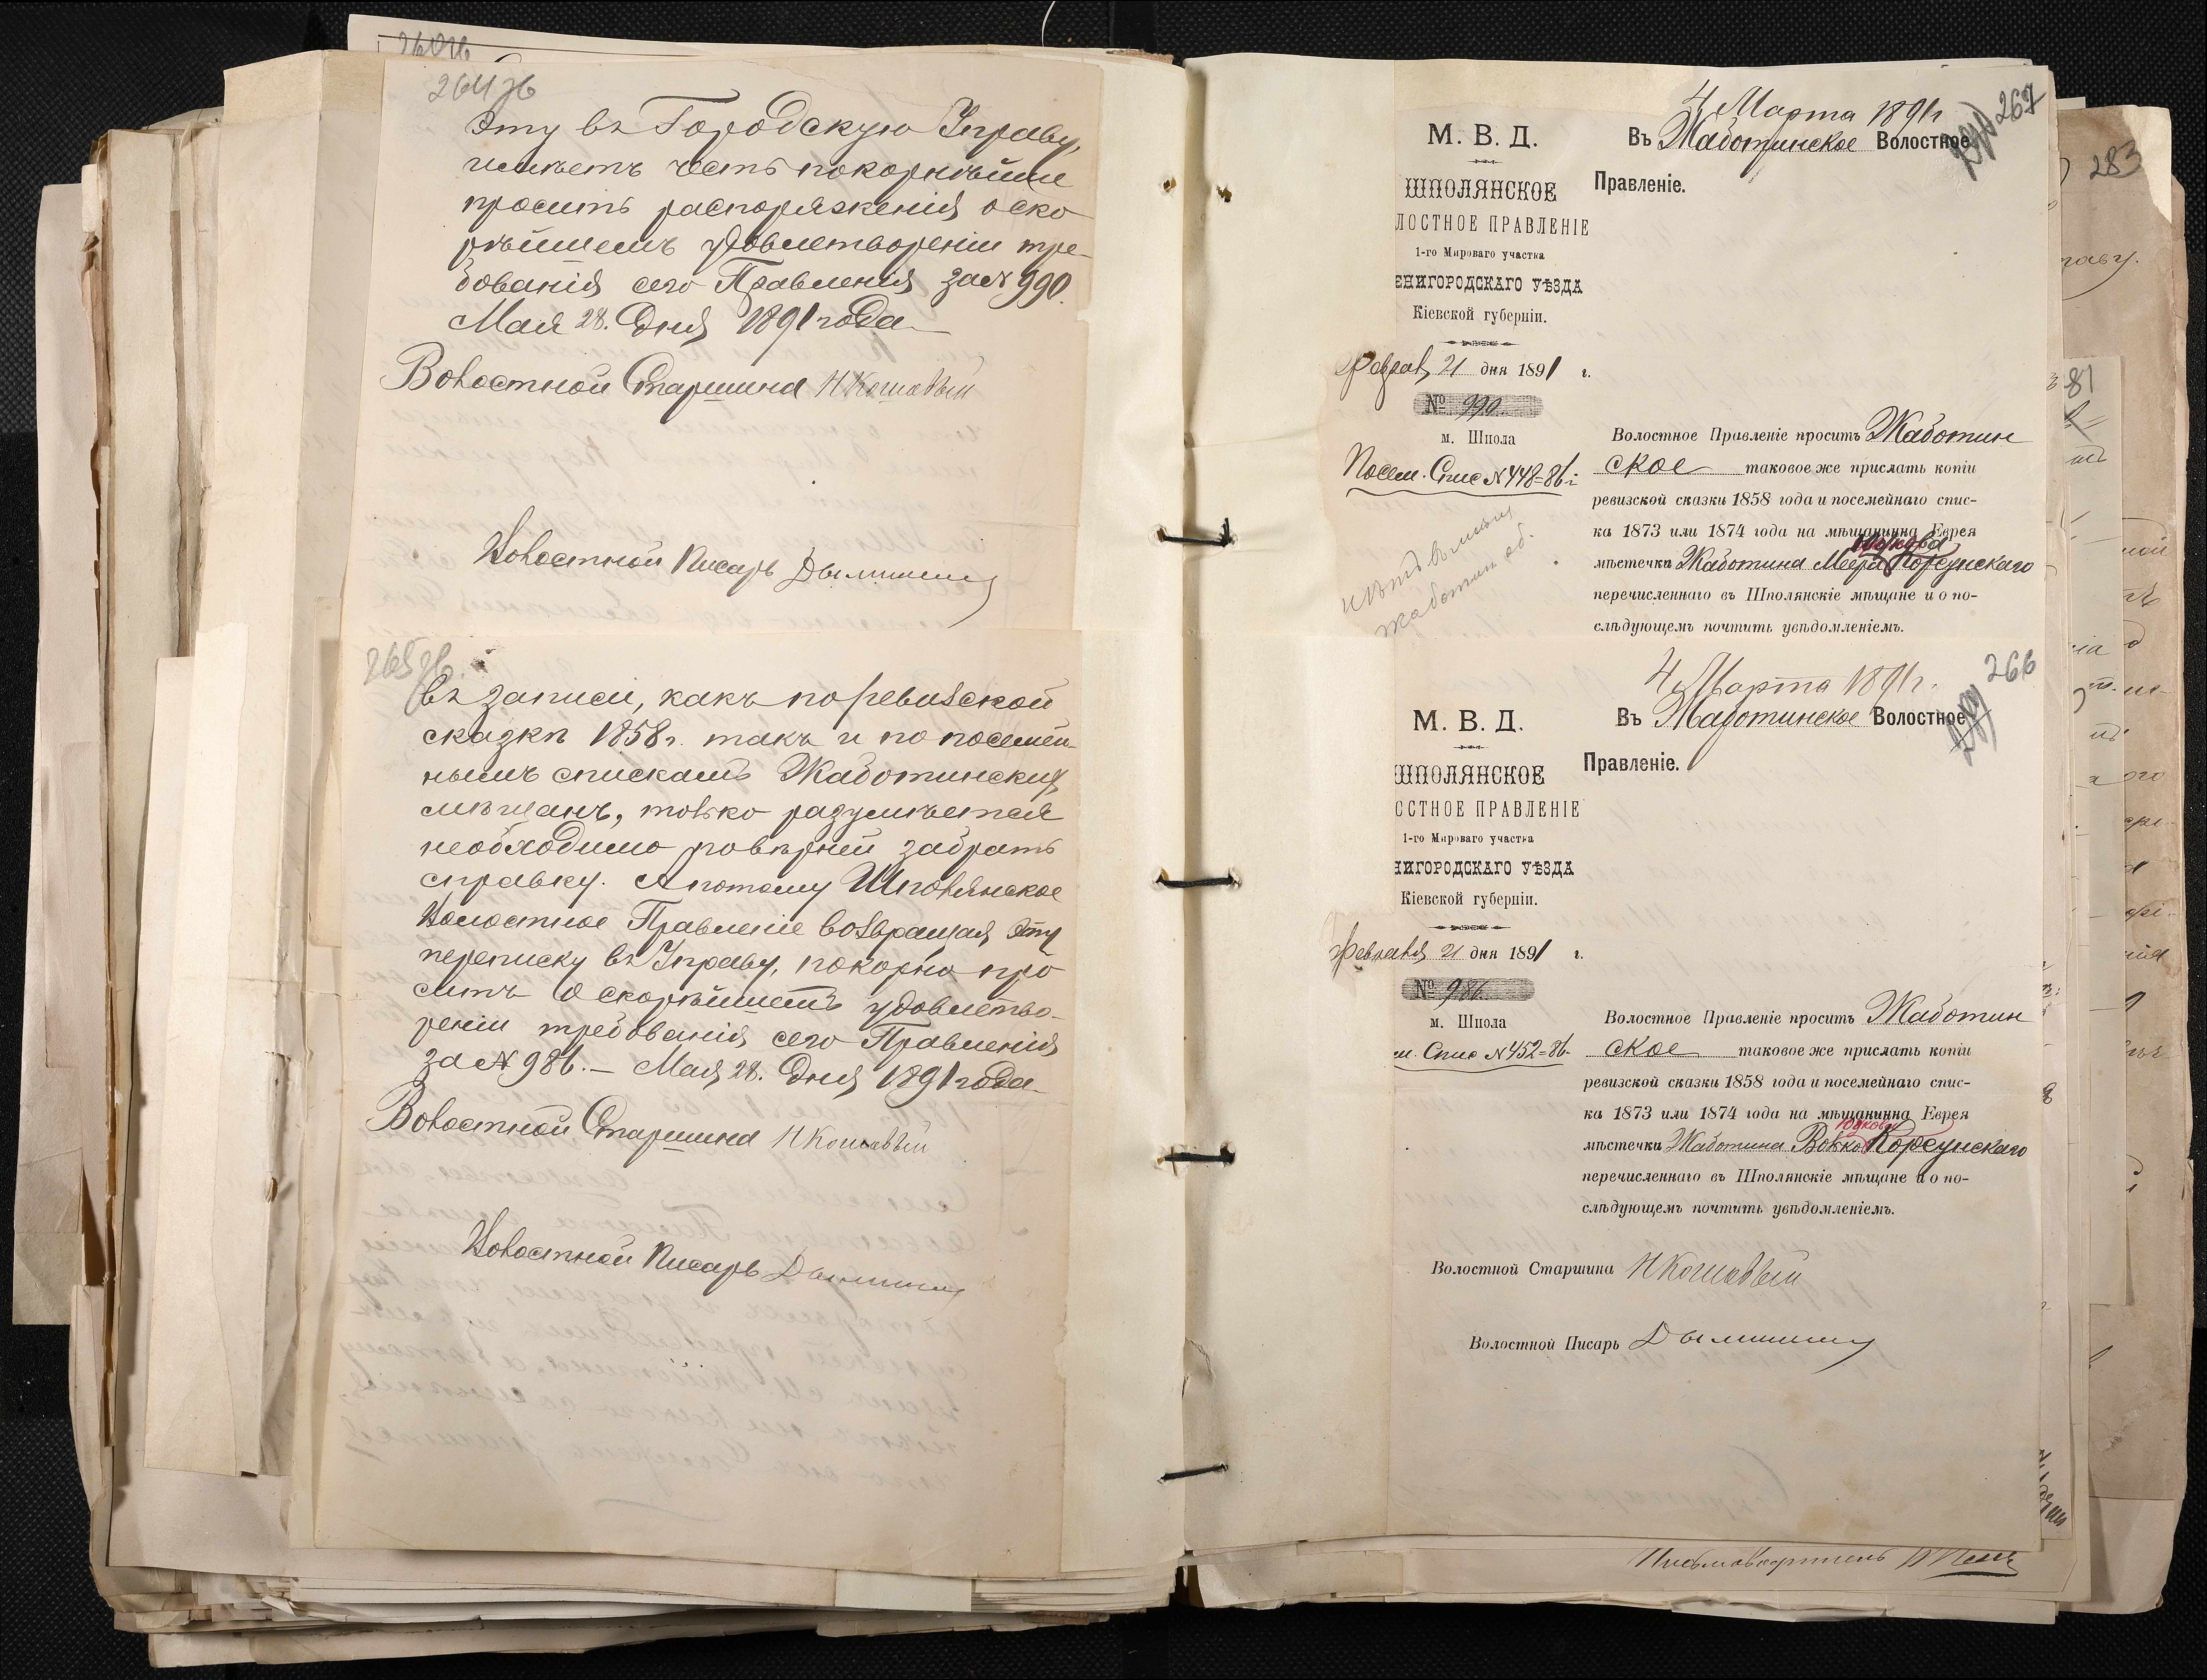 264 об
эту въ Городскую Управу,
имѣетъ честь покорнѣйше
просить распоряженія о ско
рѣйшемъ удовлетвореніи тре-
бованія сего Правленія за № 990.
Мая 28. дня 1891 года
Волостной Старшина Н Кошовый
Волостной Писарь
265 об.
въ записи, какъ по ревизской
сказкѣ 1858 г. такъ и по посемей-
нымъ спискамъ Жаботинскихъ
мѣщанъ, только разумѣется
необходимо повѣрнѣй забрать
справку. А потому Шполянское
Волостное Правленіе возвращая эту
переписку въ Управу, покорно про
ситъ о скорѣйшемъ удовлетво-
реніи требованія сего Правленія
за № 986. – Мая 28. дня 1891 года
Волостной Старшина Н Кошовый
Волостной Писарь
4 Марта 1891 г
267
М. В. Д.
Въ Жаботинское Волостное
Правленіе.
ШПОЛЯНСКОЕ
ЛОСТНОЕ ПРАВЛЕНІЕ
1-го Мироваго участка
ЕНИГОРОДСКАГО УѢЗДА
Кіевской губерніи.
Феврал 21 дня 1891 г.
№ 990
м. Шпола
Посем. Спис № 448=86 г
нѣтъ въ
Волостное Правленіе проситъ Жаботин
ское таковое же прислать копіи
ревизской сказки 1858 года и посемейнаго спис-
ка 1873 или 1874 года на мѣщанина Еврея
Юдкова
мѣстечка Жаботина Меера Корсунскаго
перечисленнаго въ Шполянскіе мѣщане и о по-
слѣдующемъ почтить увѣдомленіемъ.
4 Марта 1891 г.
266
М. В. Д.
Въ Жаботинское Волостное
Правленіе.
ШПОЛЯНСКОЕ
СТНОЕ ПРАВЛЕНІЕ
1-го Мироваго участка
НИГОРОДСКАГО УѢЗДА
Кіевской губерніи.
Февраля 21 дня 1891 г.
№ 986.
м. Шпола
м. Спис № 452=86
Волостное Правленіе проситъ Жаботин
ское таковое же прислать копіи
ревизской сказки 1858 года и посемейнаго спис-
ка 1873 или 1874 года на мѣщанина Еврея
Юдкова
мѣстечка Жаботина Волко Корсунскаго
перечисленнаго въ Шполянскіе мѣщане и о по-
слѣдующемъ почтить увѣдомленіемъ.
Волостной Старшина Н Кошовый
Волостной Писарь
283
81
Письмоводитель